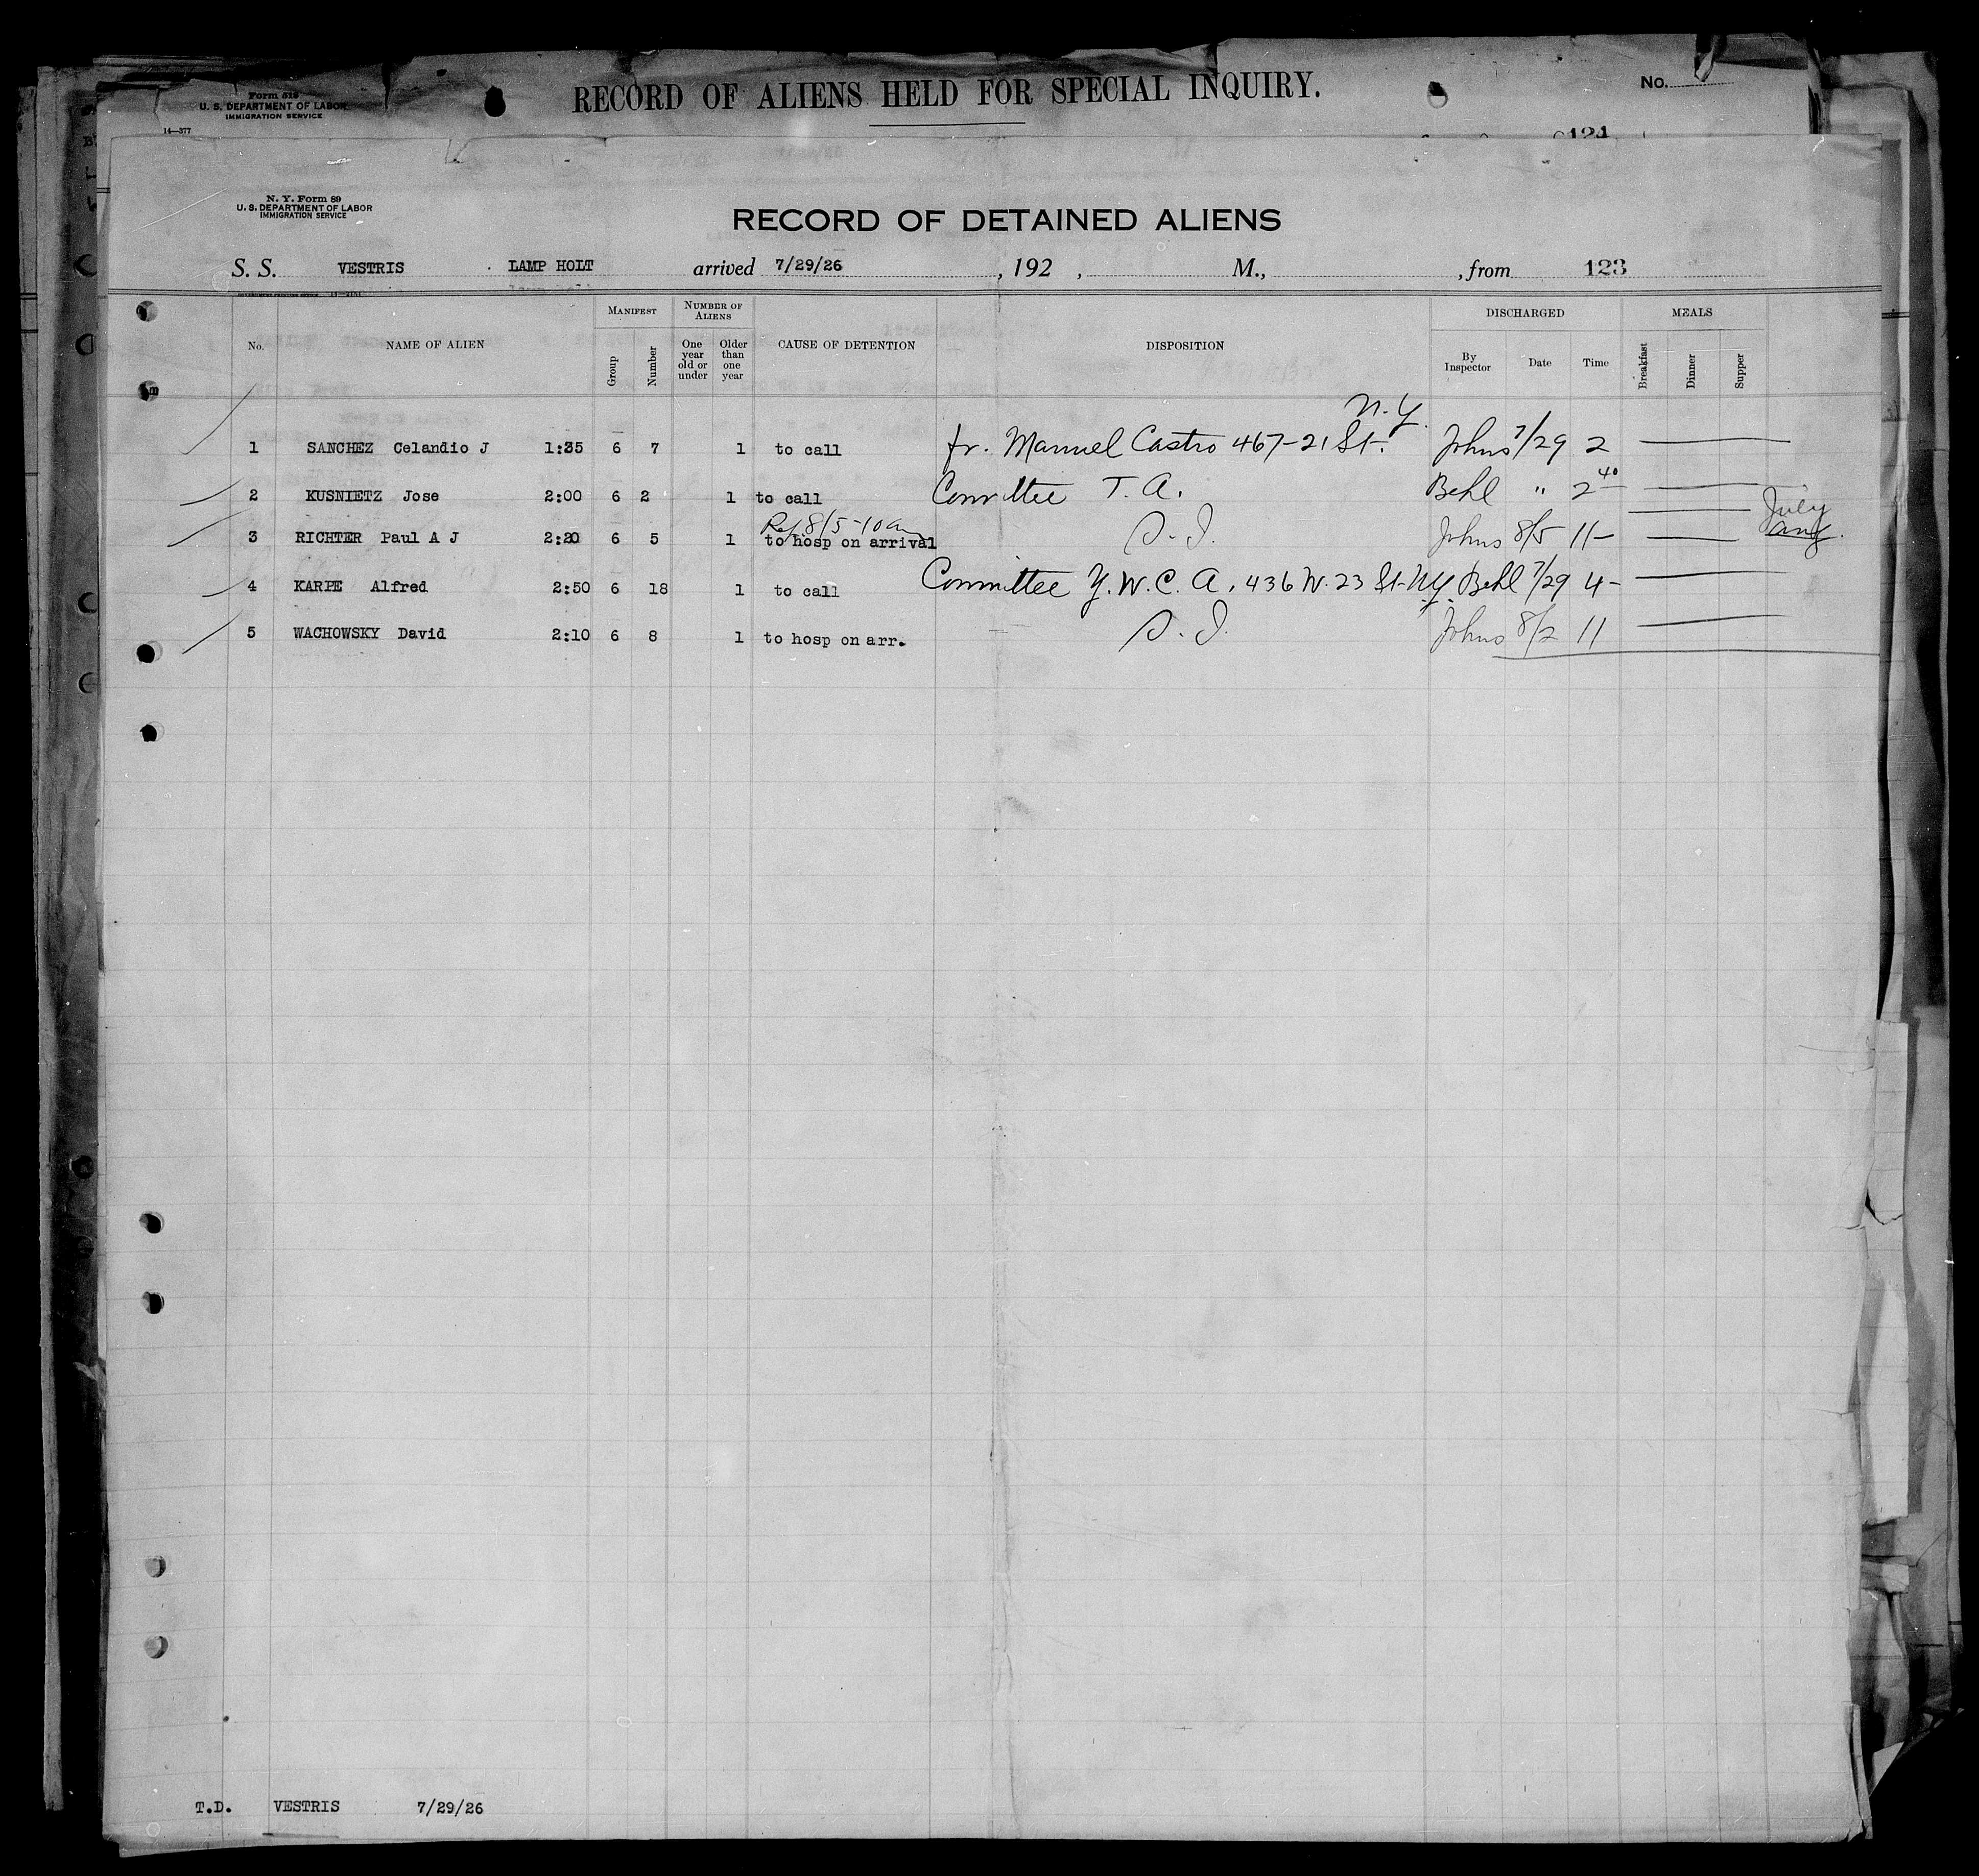 Form 518
U. S. DEPARTMENT OF LABOR
IMMIGRATION SERVICE
14—377
RECORD OF ALIENS HELD FOR SPECIAL INQUIRY.
No.
124
N. Y. Form 89
U. S. DEPARTMENT OF LABOR
IMMIGRATION SERVICE
RECORD OF DETAINED ALIENS
S. S. VESTRIS LAMP HOLT arrived 7/29/26, 192 , M., , from 123
No. NAME OF ALIEN MANIFEST Group Number NUMBER OF ALIENS One year old or under Older than one year CAUSE OF DETENTION DISPOSITION DISCHARGED By Inspector Date Time MEALS Breakfast Dinner Supper
N.Y.
1 SANCHEZ Celandio J 1:35 6 7 1 to call fr. Manuel Castro 467-21 St. Johns 7/29 2
2 KUSNIETZ Jose 2:00 6 2 1 to call Committee T. A. Behl " 2 40
Rej 8/5-10 am July
3 RICHTER Paul A J 2:20 6 5 1 to hosp on arrival S. I. Johns 8/5 11- Aug.
4 KARPE Alfred 2:50 6 18 1 to call Committee Y. W. C. A. 436 W. 23 St. N.Y. Behl 7/29 4-
5 WACHOWSKY David 2:10 6 8 1 to hosp on arr. S. I. Johns 8/2 11
T.D. VESTRIS 7/29/26